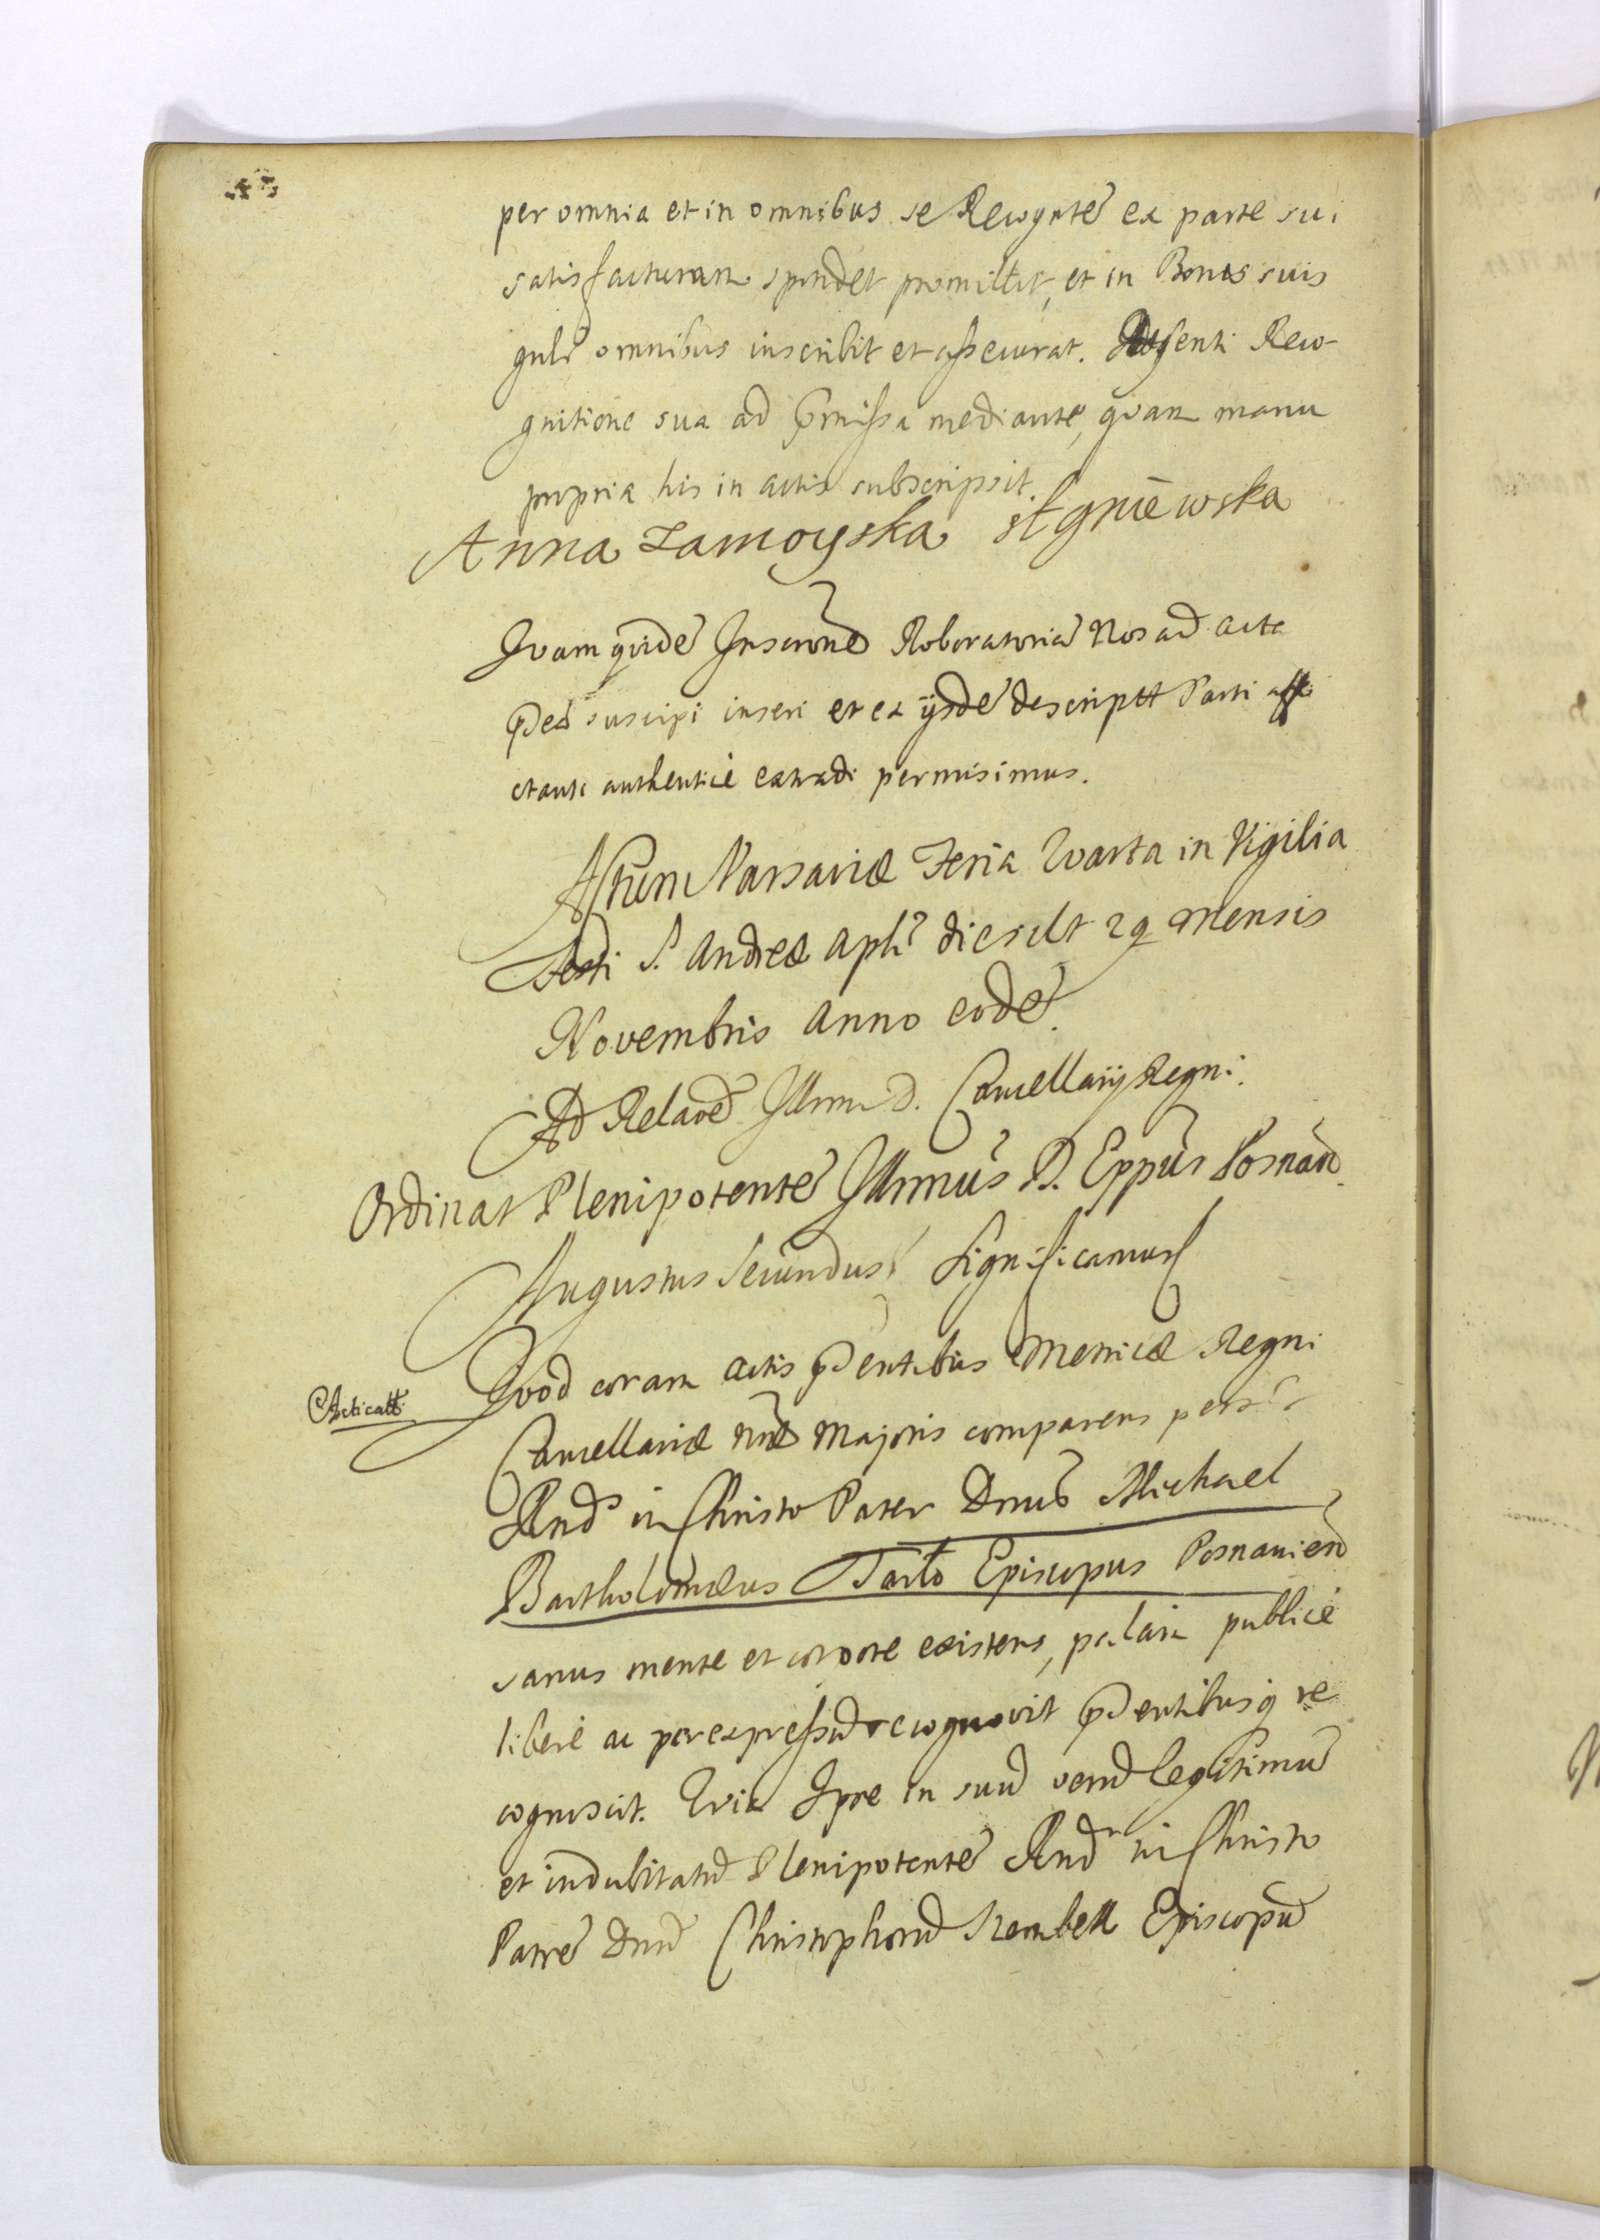 per omnia et in omnibus se Recogntẽ ex parte sui
satisfacturam spondet promittit, et in Bonis suis
gnlr omnibus inscribit et assecurat. Reco-
gnitione sua ad pmissa mediante, quam manu
propria his in actis subscripsit.
Anna Zamoyska
Quam quidẽ Inscrõnẽ Roboratoriã Nos ad acta
suscipi inseri et ex ijsdẽ descriptt Parti affe
ctanti authenticè extradi permisimus.
Actum Varsaviæ Feria Quarta in Vigilia
Festi S. Andreæ Apli die scilt 29 Mensis
Novembris Anno eodẽ.
Ad Relaõẽ Illrmi D. Cancellarij Regni.
Ordinat Plenipotentẽ Illrmus D. Eppus Posnan.
Augustus Secundus Significamus
Acticatt. Quod coram Actis pntibus Metricæ Regni
Cancellariæ nræ Majoris comparens perslr
Rnds in Christo Pater Dnus Michael
Bartholomæus Tarło Episcopus Posnanien
sanus mente et corpore existens, palam publicè
liberè ac per expressũ recognovit pntibusq re
cognoscit. Quia Ipse in suũ verũ legitimũ
et indubitatũ Plenipotentẽ Rnd in Christo
Patrẽ Dnũ Christophorũ Szembek Episcopũ